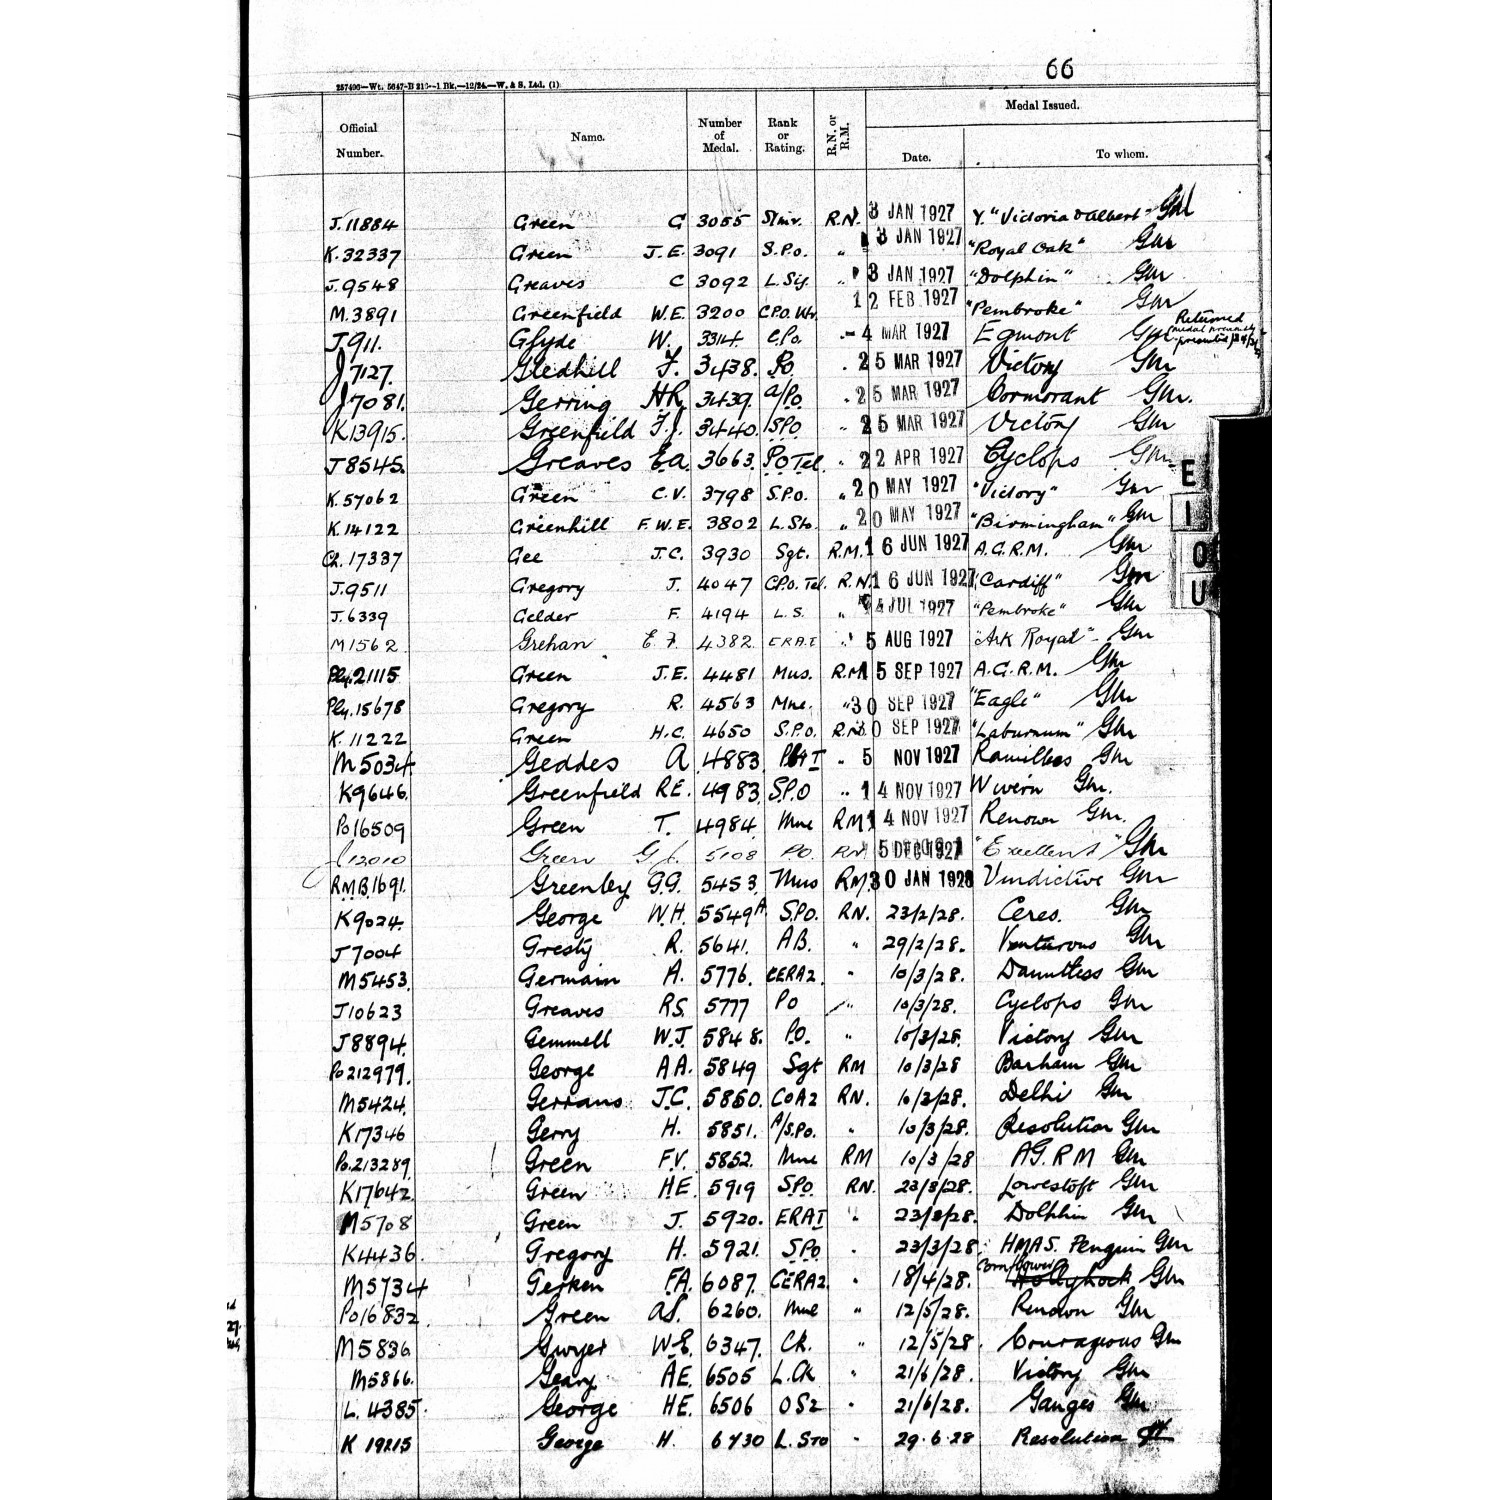 66
257400—Wt. 5647-B 216—1 Bk.—12/24.—W. & S. Ltd. (1)
Official Number. Name. Number of Medal. Rank or Rating. R.N. or R.M. Medal Issued. Date. To whom.
J.11884 Green G 3055 Smr. R.N. 3 JAN 1927 Y. "Victoria & Albert" Gm
K.32337 Green J.E. 3091 S.P.O. " 3 JAN 1927 "Royal Oak" Gm
J.9548 Greaves C 3092 L.Sig. " 3 JAN 1927 "Dolphin" Gm
M.3891 Greenfield W.E. 3200 C.P.O. Wr. 12 FEB 1927 "Pembroke" Gm
J911. Glyde W. 3314. C.P.O. -4 MAR 1927 Egmont Gm Returned
J7127. Gledhill F. 3438. PO . 25 MAR 1927 Victory Gm
J7081. Gerring HR 3439. A/PO . 25 MAR 1927 Cormorant Gm.
K13915. Greenfield F.J. 3440. SPO " 25 MAR 1927 Victory Gm
J8545. Greaves E.A. 3663. PO Tel. " 22 APR 1927 Cyclops Gm
K.57062 Green C.V. 3798 S.P.O. " 20 MAY 1927 "Victory" Gm
K.14122 Greenhill F.W.E. 3802 L.Sto. " 20 MAY 1927 "Birmingham" Gm
Ch.17337 Gee J.C. 3930 Sgt. R.M. 16 JUN 1927 A.G.R.M. Gm
J.9511 Gregory J. 4047 C.P.O. Tel. R.N. 16 JUN 1927 "Cardiff" Gm
J.6339 Gelder F. 4194 L.S. " 4 JUL 1927 "Pembroke" Gm
M1562 Grehan E.F. 4382 ERA I " 5 AUG 1927 "Ark Royal" Gm
Ply.21115 Green J.E. 4481 Mus. R.M. 15 SEP 1927 A.G.R.M. Gm
Ply.15678 Gregory R. 4563 Mne. " 30 SEP 1927 "Eagle" Gm
K.11222 Green H.C. 4650 S.P.O. R.N. 30 SEP 1927 "Laburnum" Gm
M5034. Geddes A 4883 I " 5 NOV 1927 Ramillies Gm
K9646. Greenfield RE. 4983. S.P.O " 14 NOV 1927 Wivern Gm.
Po16509 Green T. 4984. Mne RM 14 NOV 1927 Renown Gm.
J12010 Green G.J. 5108 P.O. RN 5 DEC 1927 "Excellent" Gm
RMB1691. Greenley G.G. 5453. Mus RM. 30 JAN 1928 Vindictive Gm
K9024. George W.H. 5549A S.P.O. RN. 23/2/28. Ceres. Gm
J7004 Gresty R. 5641. AB. " 29/2/28. Venturous Gm
M5453. Germain A. 5776. CERA2. " 10/3/28. Dauntless Gm
J10623 Greaves RS. 5777 PO " 10/3/28. Cyclops Gm
J8894. Gemmell W.J. 5848. P.O. " 10/3/28. Victory Gm
Po212979. George AA. 5849 Sgt RM 10/3/28 Barham Gm
M5424. Gerrans J.C. 5850. COA2 RN. 10/3/28. Delhi Gm
K17346 Gerry H. 5851. A/S.Po. " 10/3/28. Resolution Gm
Po.213289 Green F.V. 5852. Mne RM 10/3/28 AG.RM Gm
K17642. Green HE. 5919 S.P.O. RN. 23/3/28. Lowestoft Gm
M5708 Green J. 5920. ERA I " 23/3/28. Dolphin Gm
K4436. Gregory H. 5921. S.P.O. " 23/3/28. HMAS. Penguin Gm
M5734 Gerken F.A. 6087. CERA2. " 18/4/28. Cornflower Hollyhock Gm
Po16832. Green AS. 6260. Mne " 12/5/28. Renown Gm
M5836 Gwyer W.E. 6347. CK. " 12/5/28. Courageous Gm
M5866. Geary AE. 6505 L.CK " 21/6/28. Victory Gm
L.4385. George HE. 6506 OS2 " 21/6/28. Ganges Gm
K 19215 George H. 6730 L.STO " 29.6.28 Resolution
E
I
O
U